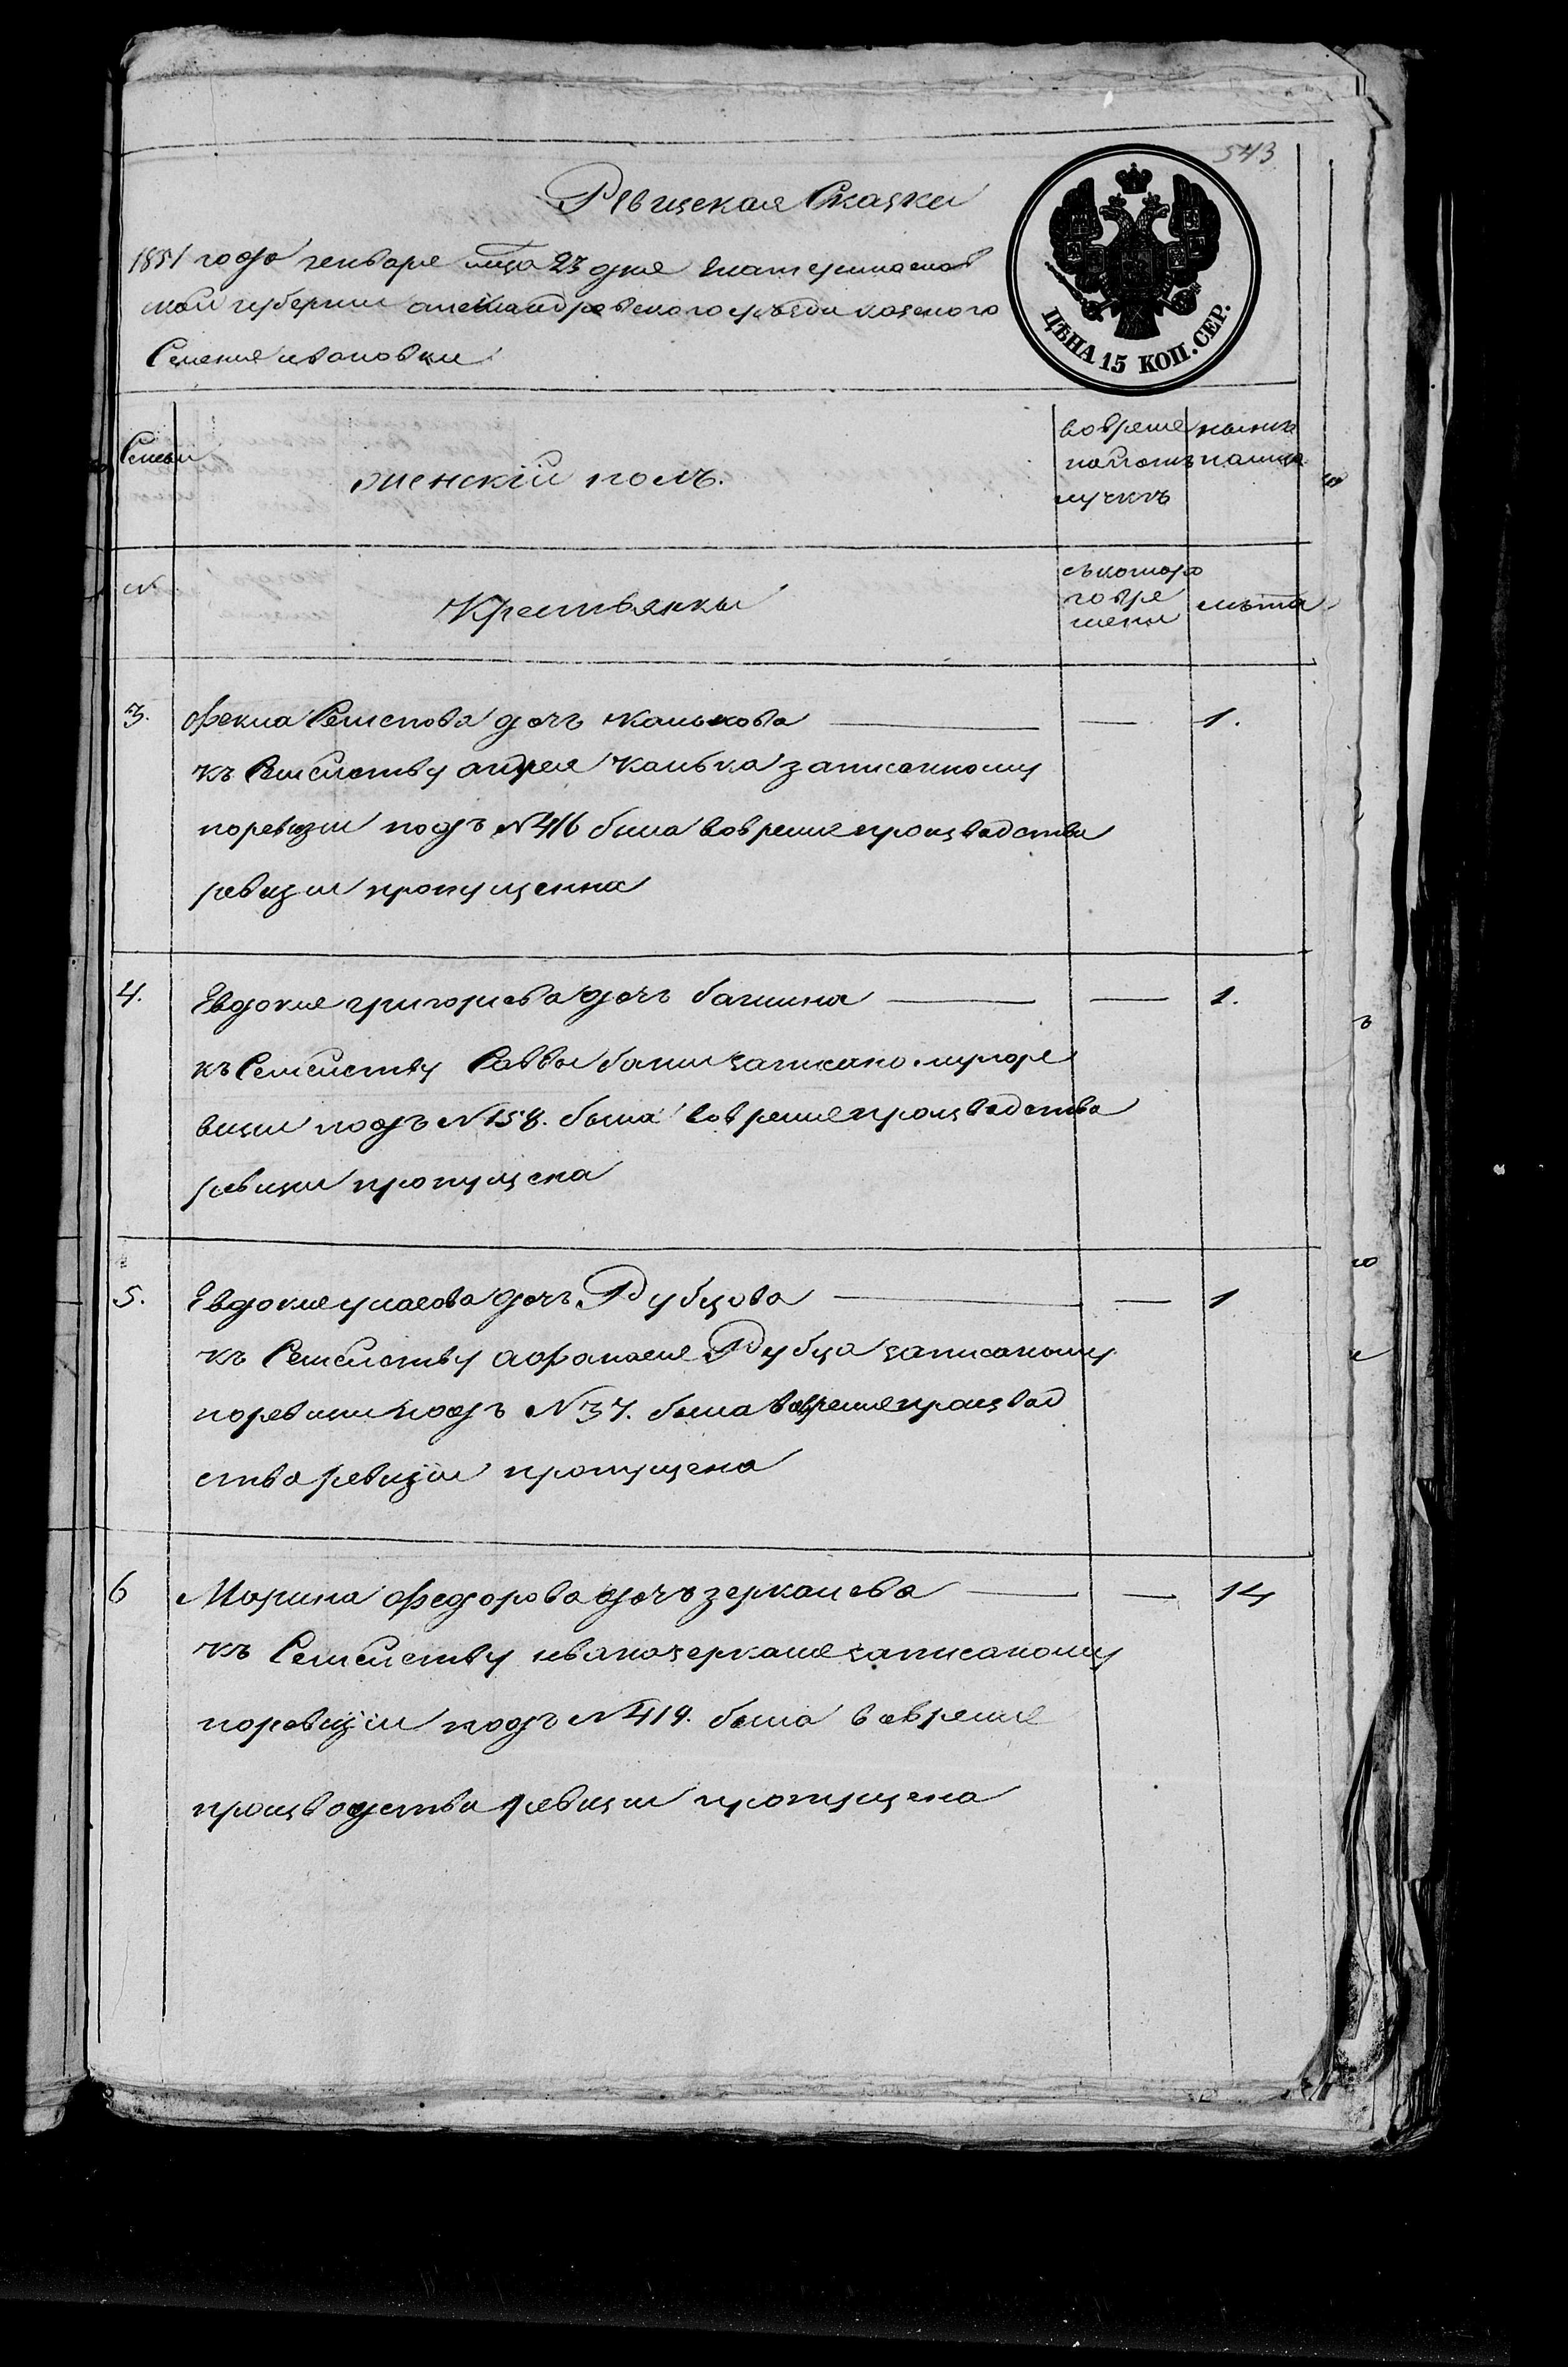 543
Ревизская Сказка
1851 года генваря мца 23 дня Екатеринослав
ской губернии александровского уезда казенного
Селения ивановки
ЦѢНА 15 КОП. СЕР.
Семьи
женскій полъ.
вовремѣ
налицо
лучкѣ
№
Крестьянки
съкотора
говре
мени
лѣта
3. Фекла Семенова дочь Калькова — — 1.
къ Семейству андрея Калька записанному
поревизіи подъ №416 была вовремя производства
ревизіи пропущенна
4. Евдокия григориева дочь башина — — 1.
къ Семейству Саввы баши записаному поре
визии подъ №158. была вовремя производства
ревизии пропущена
5. Евдокия дочь Рубцова — — 1
къ Семейству афанасия Рубца записаному
поревизии подъ №37. была вовремя производ
ства ревизіи пропущена
6 Марина Федорова дочь зеркалева — — 14
къ Семейству ивана зеркаля записаному
поревизіи подъ №419. была вовремя
производства ревизии пропущена